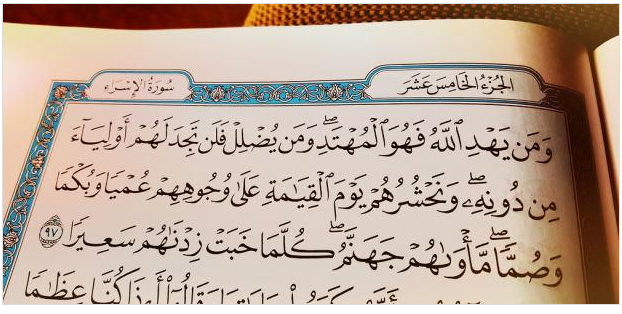 الجزء الخامس عشر
سورة الإسراء
وَمَن يَهْدِ ٱللَّهُ فَهُوَ ٱلْمُهْتَدِ ۖ وَمَن يُضْلِلْ فَلَن تَجِدَ لَهُمْ أَوْلِيَآءَ
مِن دُونِهِۦ ۖ وَنَحْشُرُهُمْ يَوْمَ ٱلْقِيَٰمَةِ عَلَىٰ وُجُوهِهِمْ عُمْيًا وَبُكْمًا
وَصُمًّا ۖ مَّأْوَىٰهُمْ جَهَنَّمُ ۖ كُلَّمَا خَبَتْ زِدْنَٰهُمْ سَعِيرًا ٩٧
أَءِذَا كُنَّا عِظَٰمًا